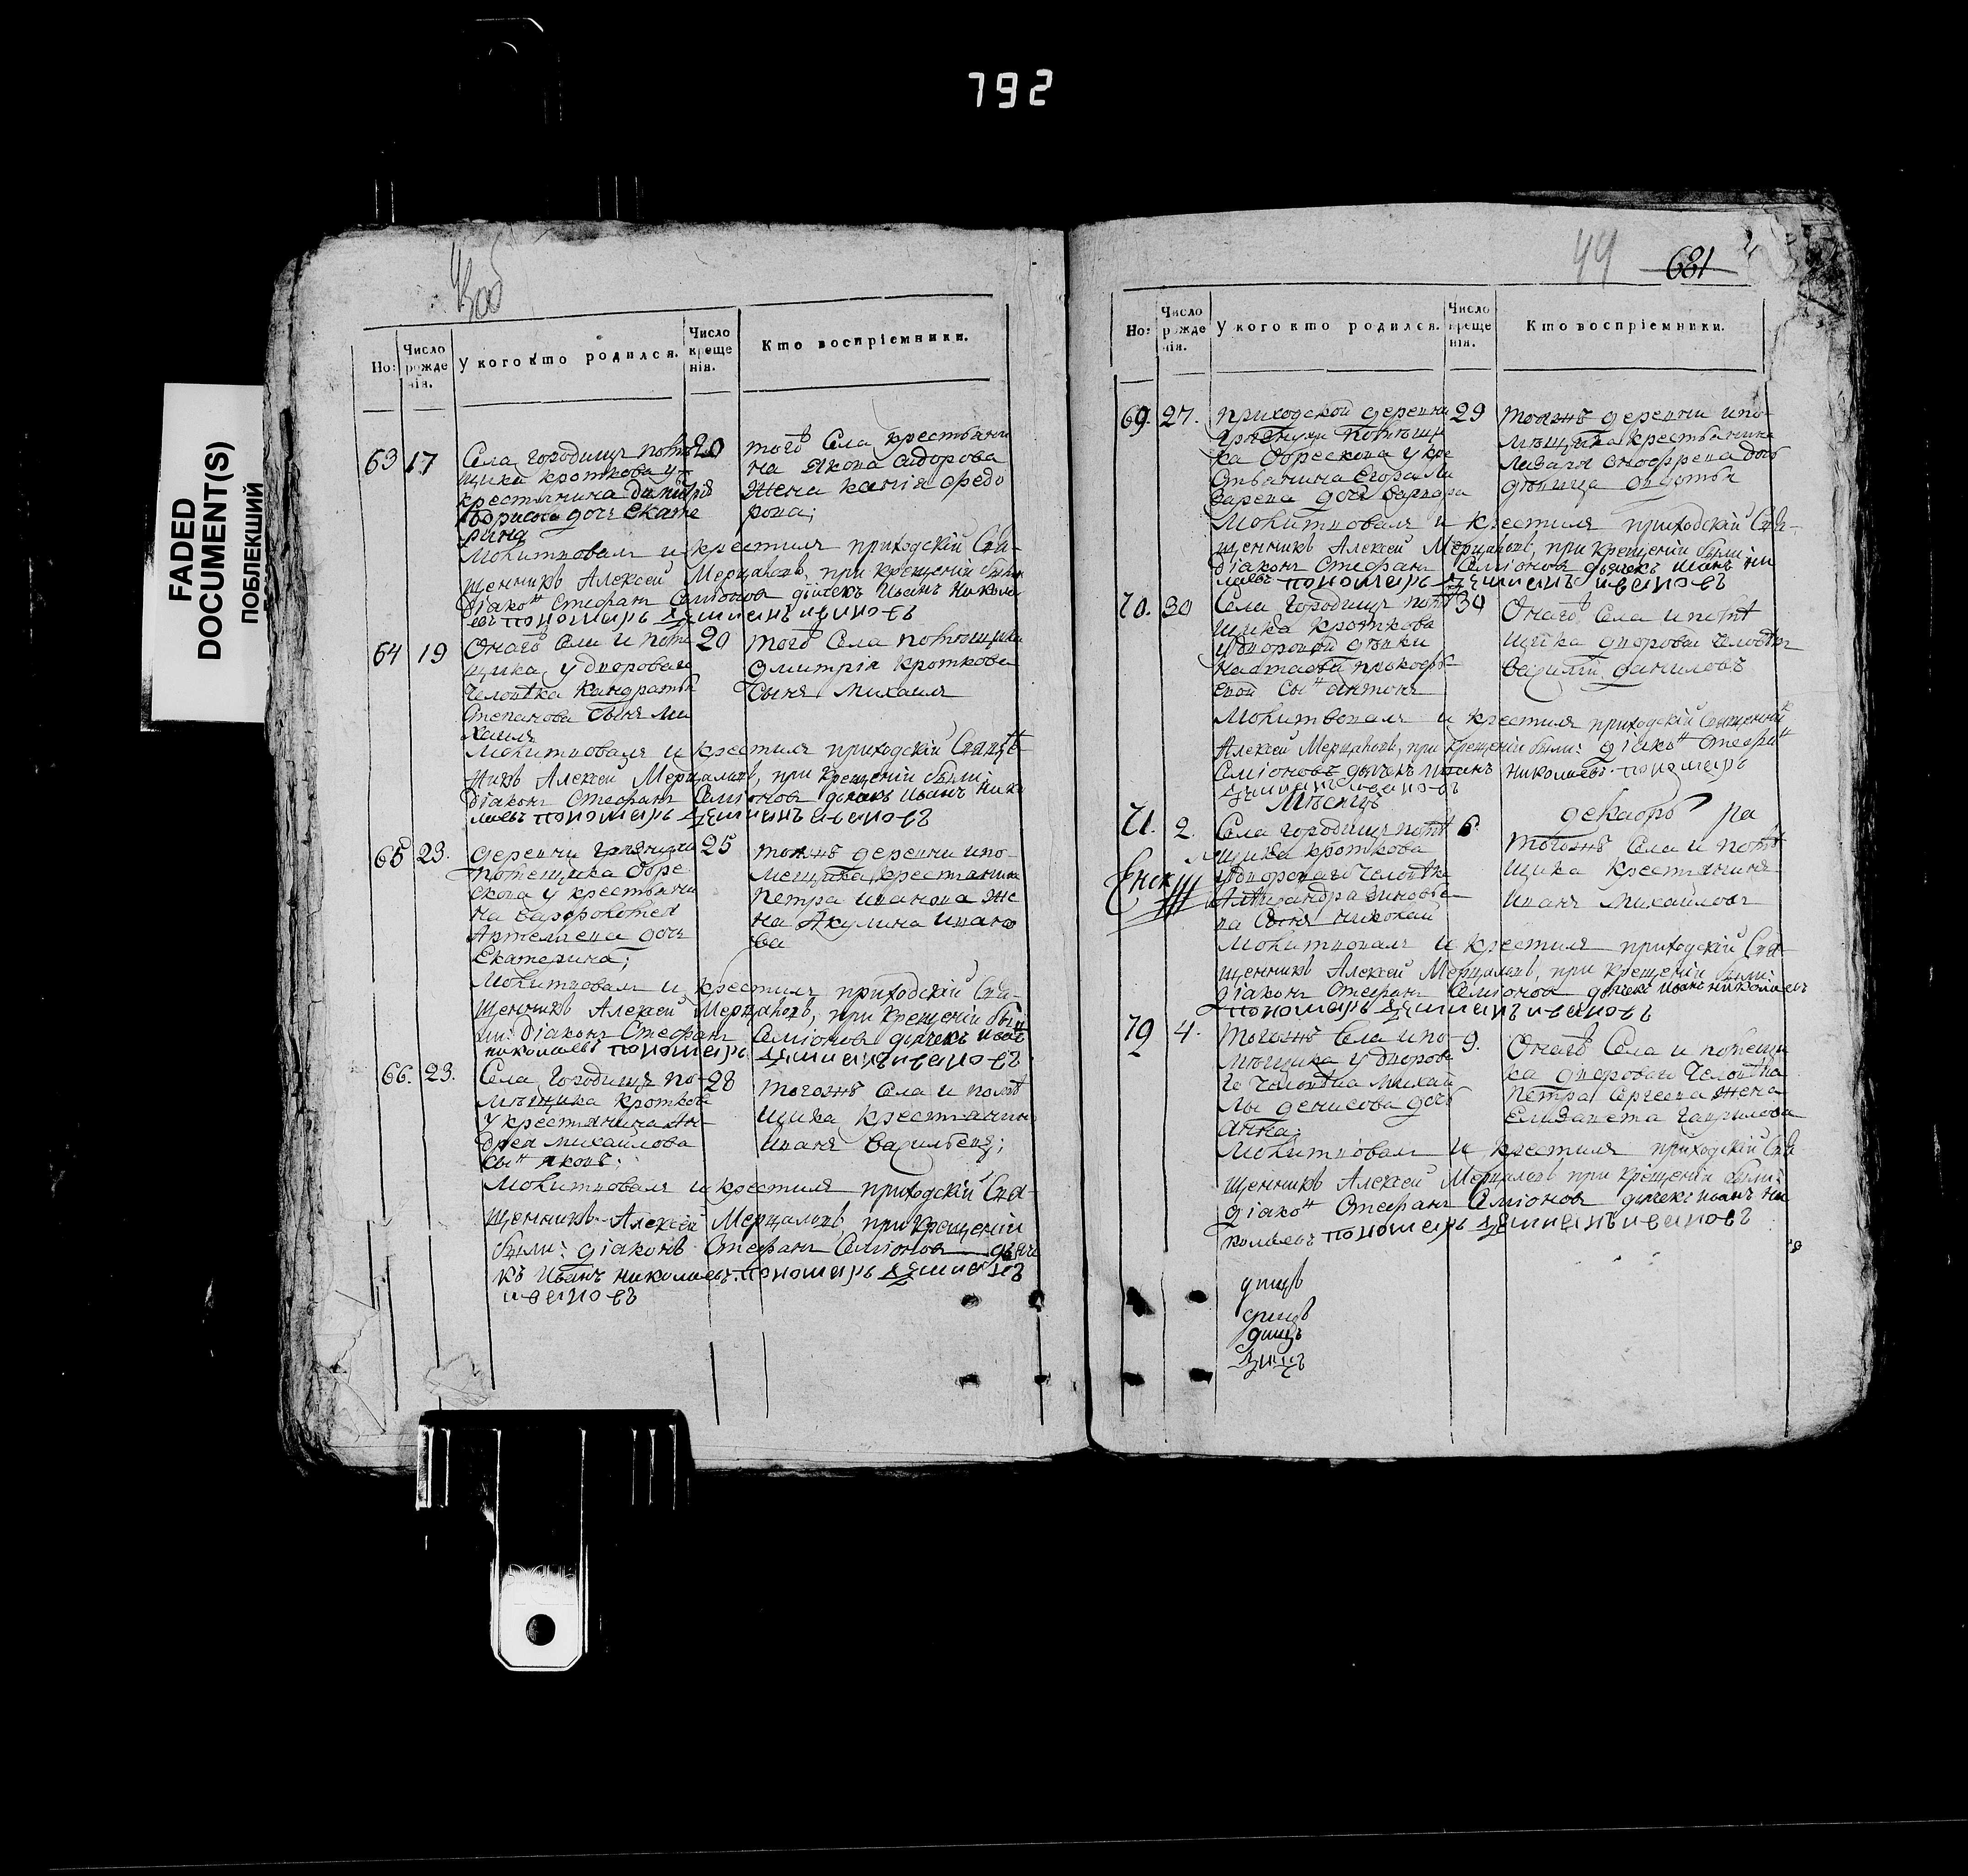 792
FADED
DOCUMENT(S)
ПОБЛЕКШИЙ
Но:
Число рожде нія.
У кого кто родился.
Число креще нія.
Кто воспріемники.
63 17 20
Села городищ
щика кроткова у
крестьянина димитрія
Борисова доч екате
рина
того Села крестьяни
на Якова Сидорова
жена Федо
рова;
Молитвовал и крестил приходскій Свя-
щенникъ Алексей Мерцаловъ, при крещеніи были
діакон Стефан Семіонов дьячекъ Иванъ Никола
евъ пономарь ивановъ
64 19 20
Онаго Села и поме
щика у двороваго
человѣка Кандратья
Степанова сынъ Ми
хаилъ
того Села помѣщика
Дмитрія Кроткова
Сынъ Михаилъ
Молитвовалъ и крестилъ приходскій Свяще
никъ Алексей Мерцаловъ, при крещеніи были
діаконъ Стефанъ Семіоновъ дьячекъ Иванъ Нико
лаевъ пономарь ивановъ
65 23. 25
деревни грязнухи
помещика Обре
скова у крестьяни
на варфоломея
Артемьева дочь
Екатерина;
тоежъ деревни и по-
мещика крестьянина
Петра иванова же
на Акулина ивано
ва
Молитвовалъ и крестилъ приходскій Свя-
щенникъ Алексей Мерцаловъ, при крещеніи бы
ли: діаконъ Стефанъ Семіоновъ дьячекъ иванъ
николаевъ пономарь ивановъ
66. 23. 28
Села Городищъ по-
мѣщика кроткова
у крестьянина Ан-
дрея михайлова
сынъ яковъ;
тогожъ Села и помѣ
щика крестьянинъ
иванъ Васильевъ;
Молитвовалъ и крестилъ приходскій Свя-
щенникъ Алексей Мерцаловъ, при крещеніи
были: діаконъ Стефанъ Семіоновъ дьяче
къ Иванъ николаевъ пономарь
ивановъ
44
681
Но:
Число рожде нія.
У кого кто родился.
Число креще нія.
Кто воспріемники.
69. 27. 29
приходской деревни
грязнухи помѣщи
ка Обрескова у кре
стьянина Егора Ла
зарева дочь варвара
тоежъ деревни и по-
мѣщика крестьянина
Лазаря дочь
дѣвица
Молитвовалъ и крестилъ приходскій Свя-
щенникъ Алексей Мерцаловъ, при крещеніи были
діаконъ Стефанъ Семіоновъ дьячекъ иванъ ни
лаевъ пономарь ивановъ
70. 30 30
Села Городищъ помѣ
щика кроткова
у дворовой дѣвки
настасьи прокофь
евой сынъ антонъ
Онаго Села и помѣ
щика дворовой человѣкъ
василій даниловъ
Молитвовалъ и крестилъ приходскій Священникъ
Алексей Мерцаловъ, при крещеніи были: діаконъ Стефанъ
Семіоновъ дьячекъ иванъ николаевъ пономарь
ивановъ
Мѣсяцъ декабрь
71. 2. 6.
Села городищъ помѣ
щика кроткова
у двороваго человѣка
Александра зиновье
ва Сынъ николай
тогожъ Села и помѣ
щика крестьянинъ
иванъ Михайловъ
Молитвовалъ и крестилъ приходскій Свя-
щенникъ Алексей Мерцаловъ, при крещеніи были:
діаконъ Стефанъ Семіоновъ дьячекъ иванъ николаевъ
пономарь ивановъ
79 4. 9.
тогожъ Села и по-
мѣщика у дворова
го человѣка михай
лы денисова дочь
анна;
Онаго Села и помещи
ка двороваго человѣка
петра Сергеева жена
Елизавета гаврилова
Молитвовалъ и крестилъ приходскій Свя
щенникъ Алексей Мерцаловъ при крещеніи были:
діаконъ Стефанъ Семіоновъ дьячекъ иванъ ни
колаевъ пономарь ивановъ